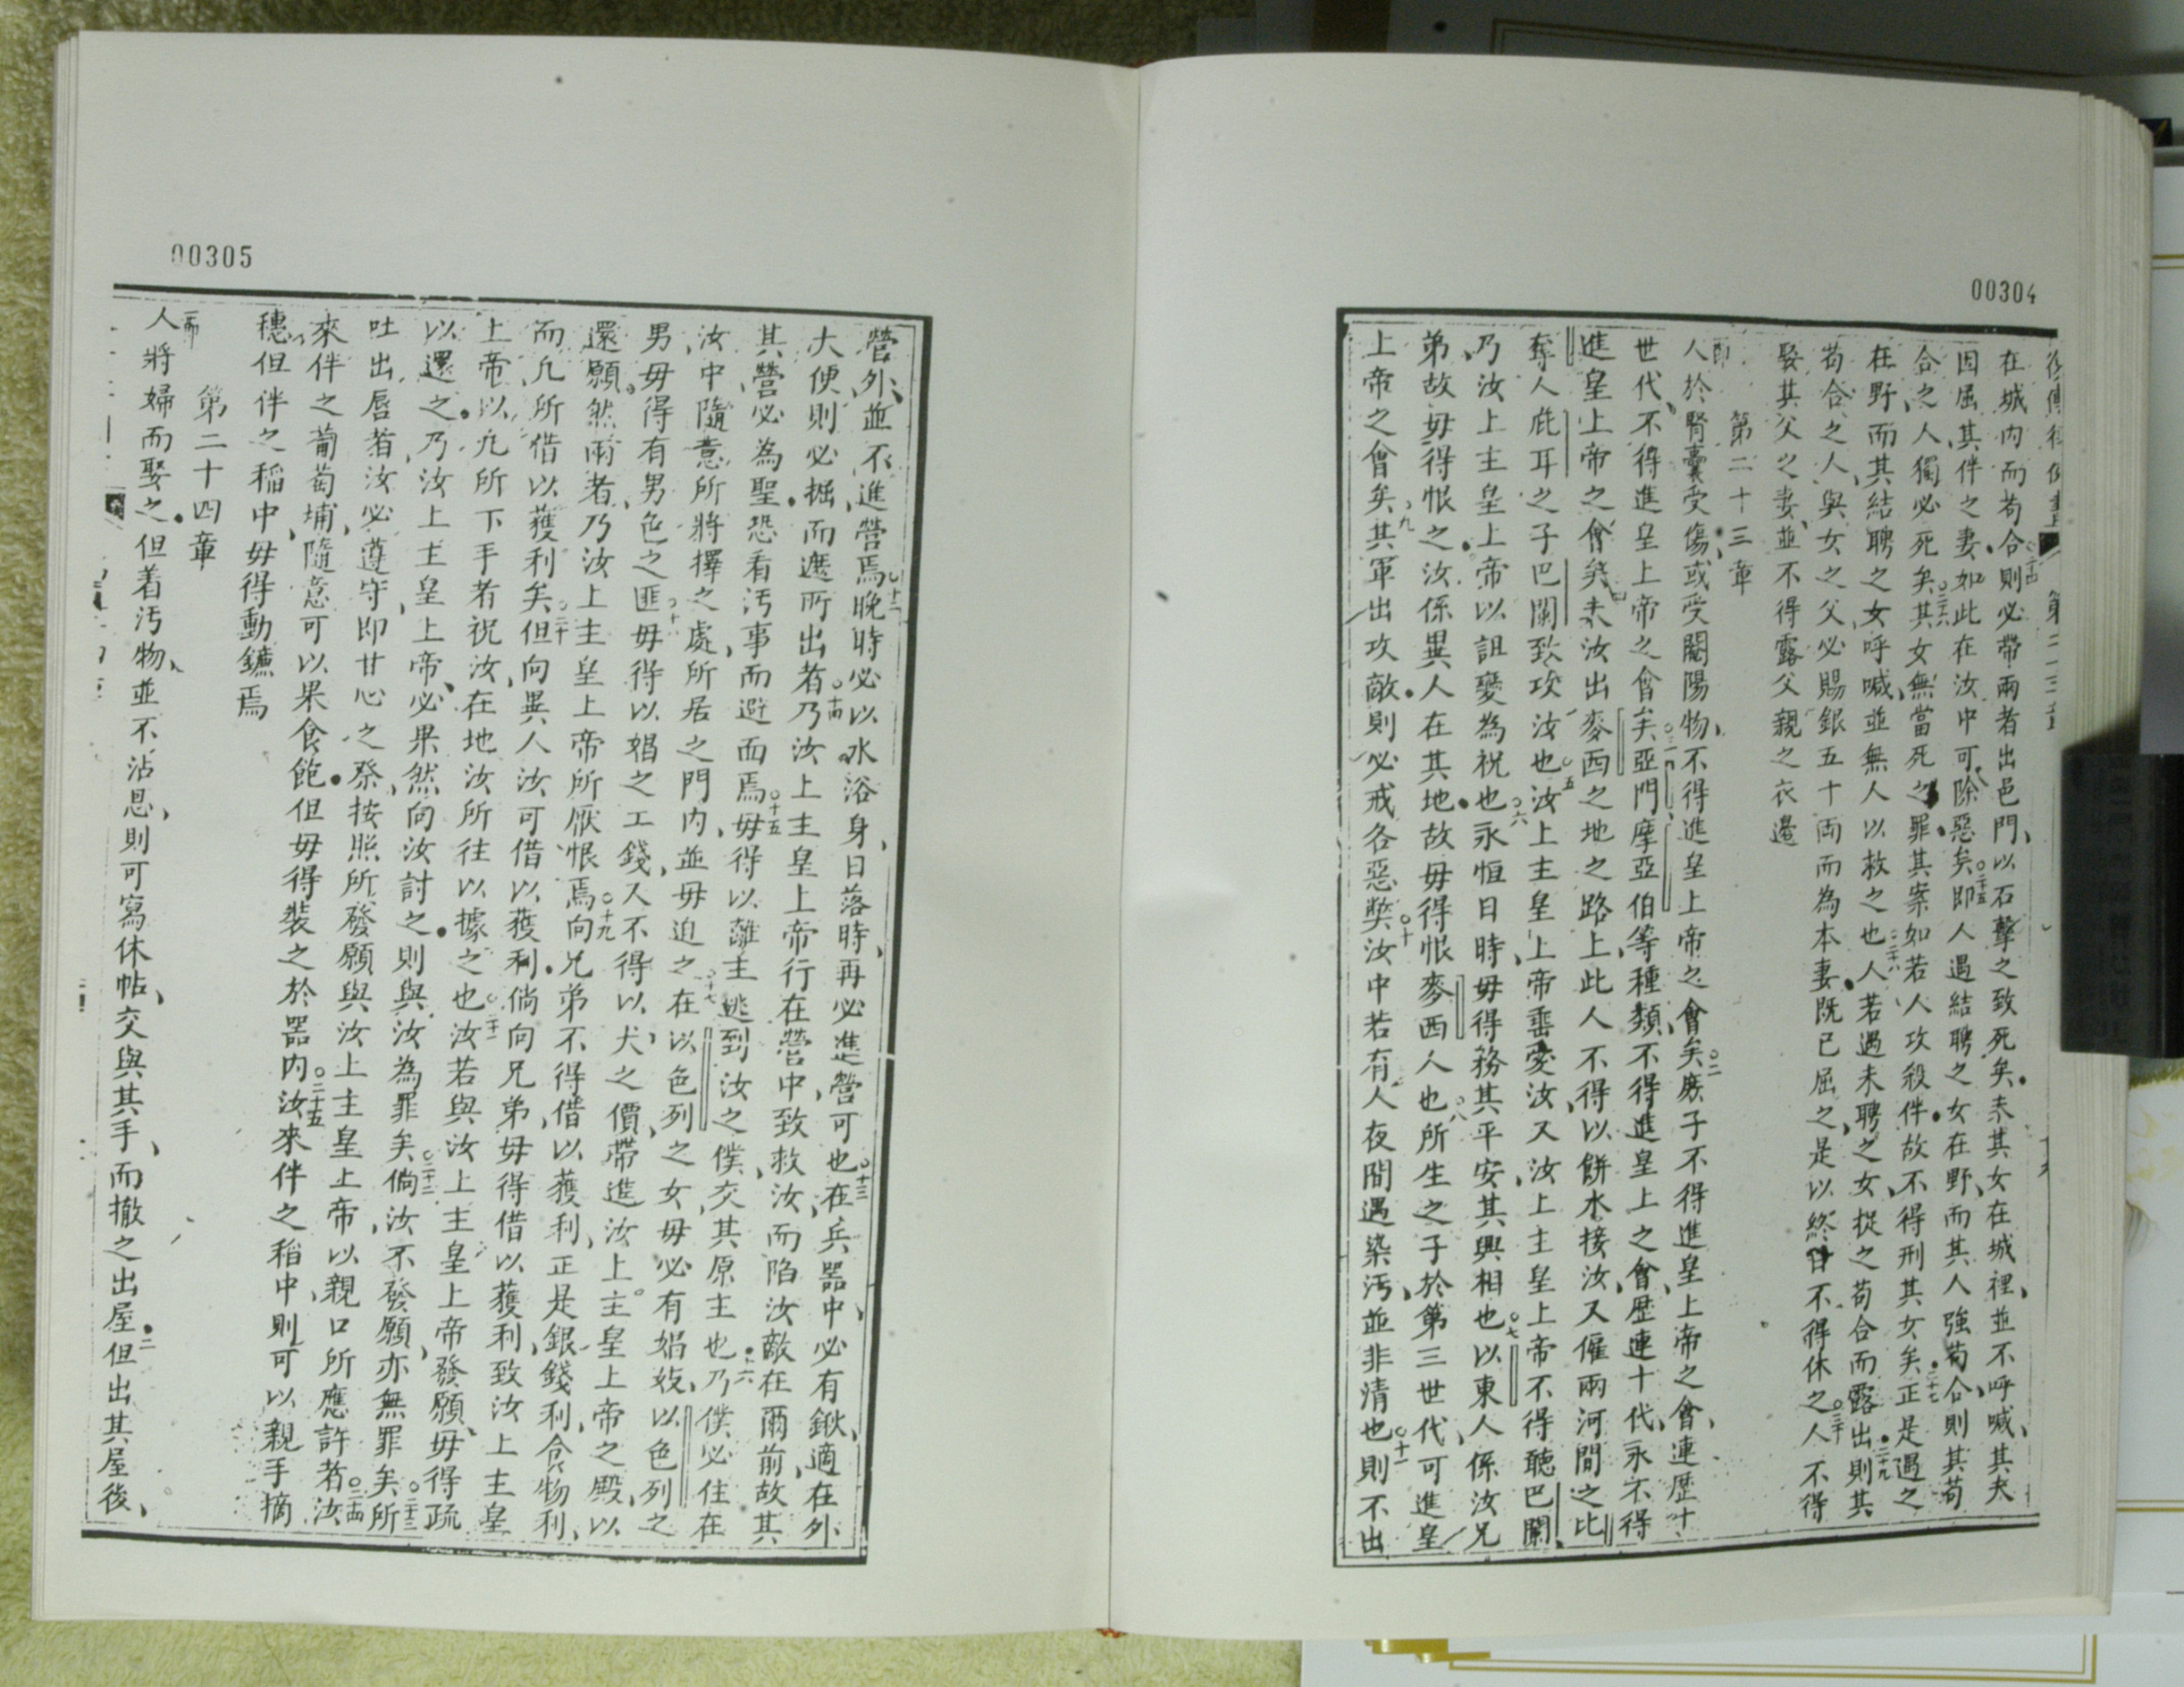 00304
在城內而苟合○二十四則必帶兩者出邑門以石擊之致死矣未其女在城裡並不呼喊其夫
因屈其伴之妻如此在汝中可除惡矣○二十五即人遇結聘之女在野而其人強苟合則其苟
合之人獨必死矣○二十六其女無當死之罪其案如若人攻殺伴故不得刑其女矣○二十七正是遇之
在野而其結聘之女呼喊並無人以救之也○二十八人若遇未聘之女捉之苟合而露出○二十九則其
苟合之人與女之父必賜銀五十両而為本妻既已屈之是以終日不得休之○三十人不得
娶其父之妻並不得露父親之衣邊
第二十三章
人於腎囊受傷或受閹陽物不得進皇上帝之會矣○二庶子不得進皇上帝之會連歷十
世代不得進皇上帝之會矣○三亞門摩亞伯等種類不得進皇上之會歷連十代永不得
進皇上帝之會矣○四未汝出麥西之地之路上此人不得以餅水接汝又僱兩河間之比
奪人庇耳之子巴闌致攻汝也○五汝上主皇上帝垂愛汝又汝上主皇上帝不得聽巴闌
乃汝上主皇上帝以詛變為祝也○六永恒日時毋得務其平安其興相也○七以東人係汝兄
弟故毋得恨之汝係異人在其地故毋得恨麥西人也○八所生之子於第三世代可進皇
上帝之會矣○九其軍出攻敵則必戒各惡獘○十汝中若有人夜間遇染汚並非清也○十一則不出
00305
營外並不進營焉○十二晚時必以水浴身日落時再必進營可也○十三在兵噐中必有鍬適在外
大便則必掘而遮所出者○十四乃汝上主皇上帝行在營中致救汝而陷汝敵在爾前故其
其營必為聖恐看汚事而避面焉○十五毋得以離主逃到汝之僕交其原主也○十六乃僕必住在
汝中隨意所將擇之處所居之門內並毋迫之○十七在以色列之女毋必有娼妓以色列之
男毋得有男色之匪○十八毋得以娼之工錢又不得以犬之價帶進汝上主皇上帝之殿以
還願然兩者乃汝上主皇上帝所厭恨焉○十九向兄弟不得借以獲利正是銀錢利食物利
而凡所借以獲利矣○二十但向異人汝可借以獲利倘向兄弟毋得借以獲利致汝上主皇
上帝以凡所下手者祝汝在地汝所往以據之也○二十一汝若與汝上主皇上帝發願毋得疏
以還之乃汝上主皇上帝必果然向汝討之則與汝為罪矣○二十二倘汝不發願亦無罪矣○二十三所
吐出唇者汝必遵守即甘心之祭按照所發願與汝上主皇上帝以親口所應許者○二十四汝
來伴之葡萄埔隨意可以果食飽但毋得裝之於噐內○二十五汝來伴之稻中則可以親手摘
穗但伴之稻中毋得動鐮焉
第二十四章
人將婦而娶之但着汚物並不沾恩則可寫休帖交與其手而撤之出屋○二但出其屋後